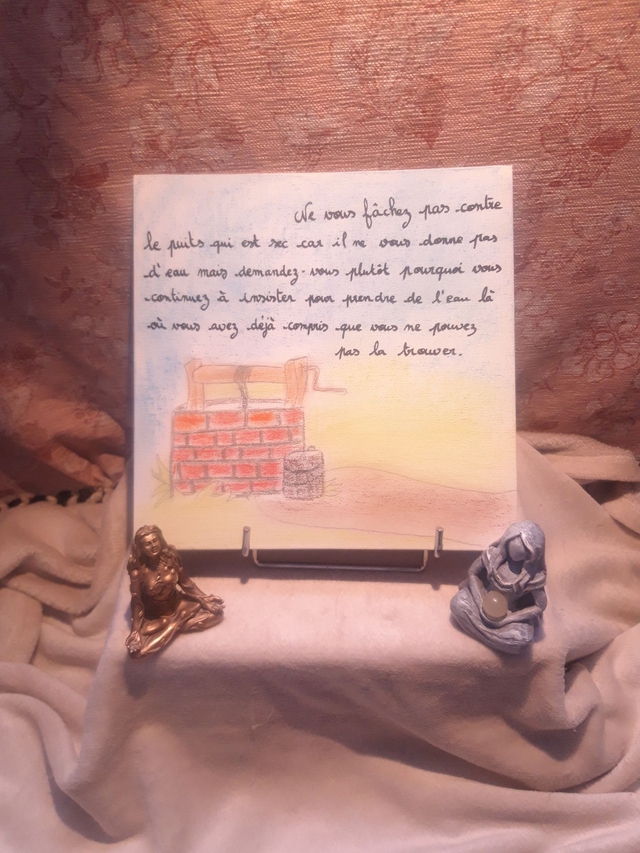 Ne vous fâchez pas contre
le puits qui est sec car il ne vous donne pas
d'eau mais demandez-vous plutôt pourquoi vous
continuez à insister pour prendre de l'eau là
où vous avez déjà compris que vous ne pouvez
pas la trouver.